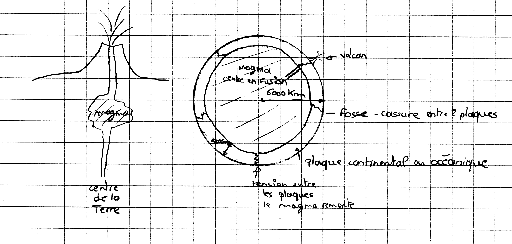 magma
centre
de la
Terre
magma
centre en fusion
6000 km
volcan
fosse - cassure entre 2 plaques
plaque continental ou océanique
tension entre
les plaques
le magma remonte